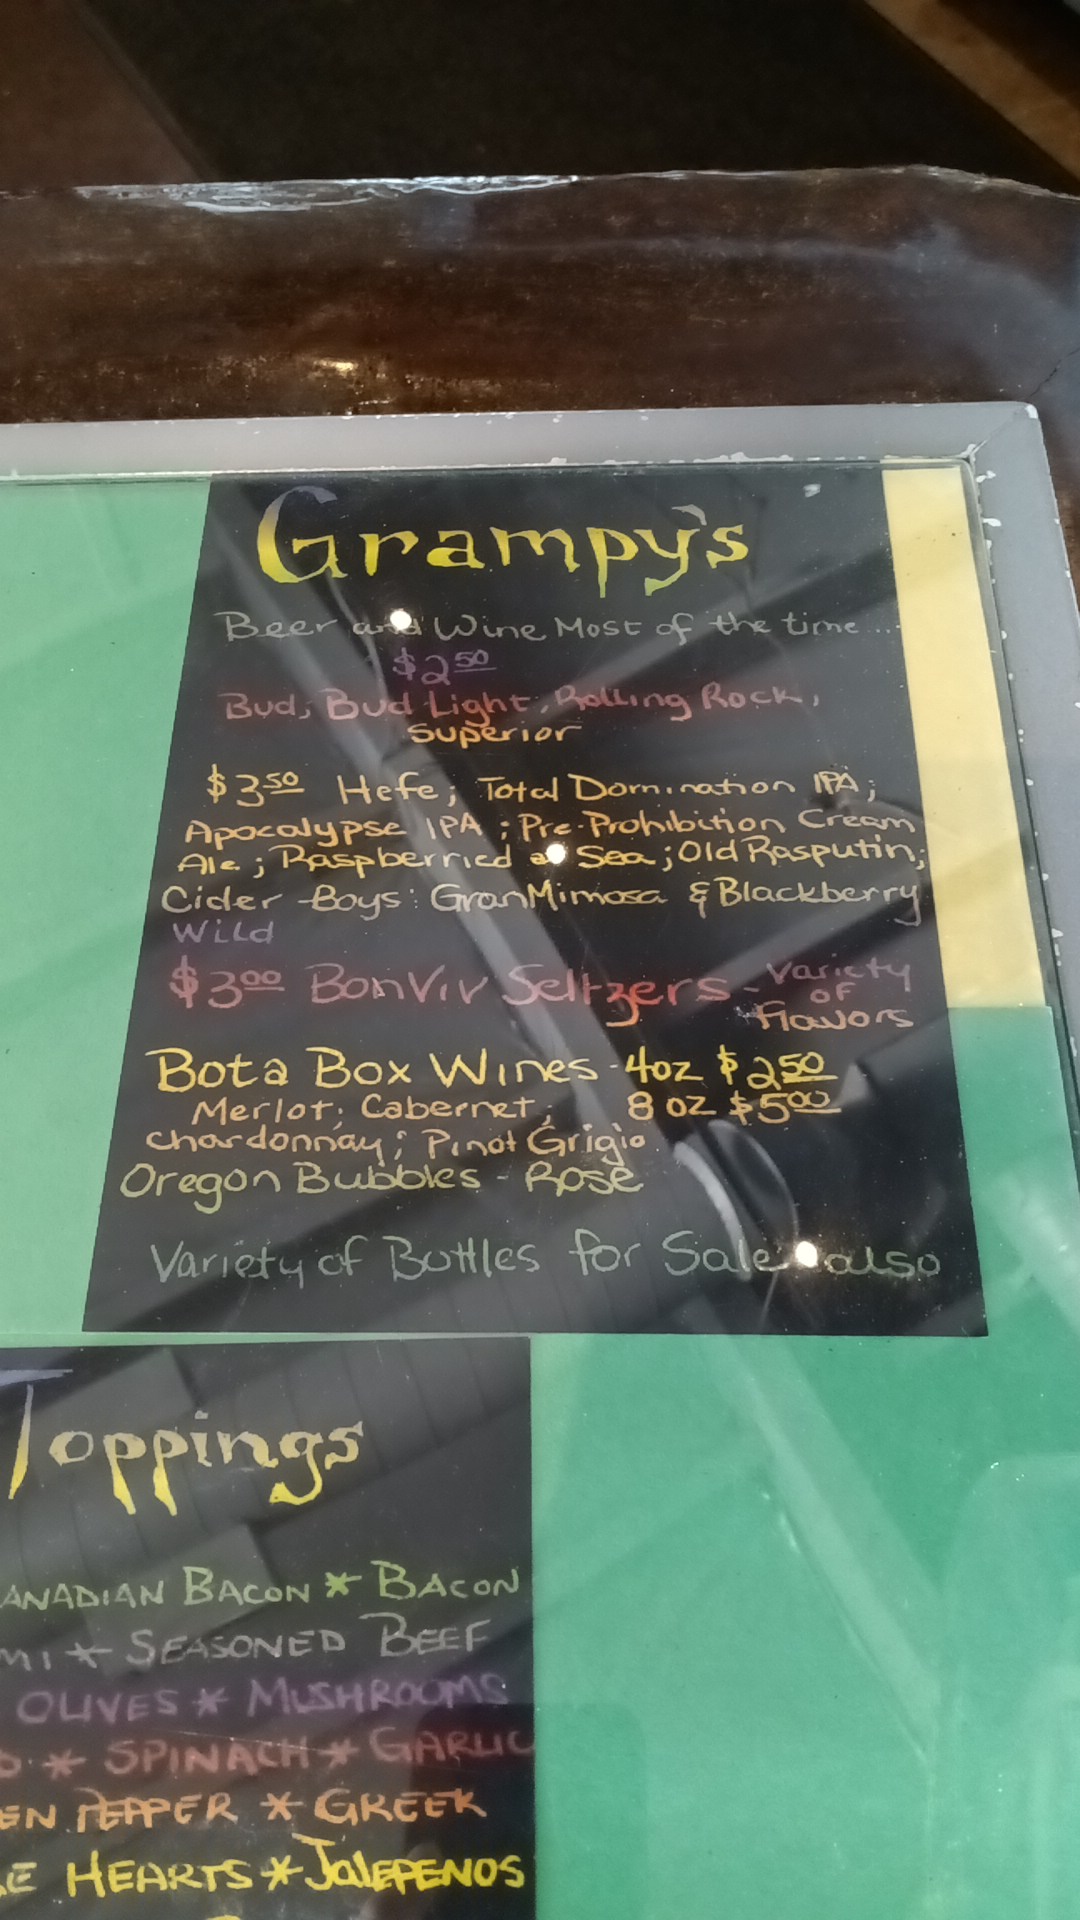 Grampy's
Beer and Wine Most of the time...
$2.50
Bud; Bud Light, Rolling Rock,
Superior
$3.50 Hefe; Total Domination IPA;
Apocalypse IPA; Pre-Prohibition Cream
Ale; Raspberried at Sea; Old Rasputin;
Cider Boys: GranMimosa & Blackberry
Wild
$3.00 BonViv Seltzers - Variety
of
flavors
Bota Box Wines - 4oz $2.50
Merlot; Cabernet; 8 oz $5.00
Chardonnay; Pinot Grigio
Oregon Bubbles - Rose
Variety of Bottles for Sale also
Toppings
ANADIAN BACON * BACON
MI * SEASONED BEEF
OLIVES * MUSHROOMS
* SPINACH * GARLIC
EN PEPPER * GREEK
E HEARTS * JalEPENOS